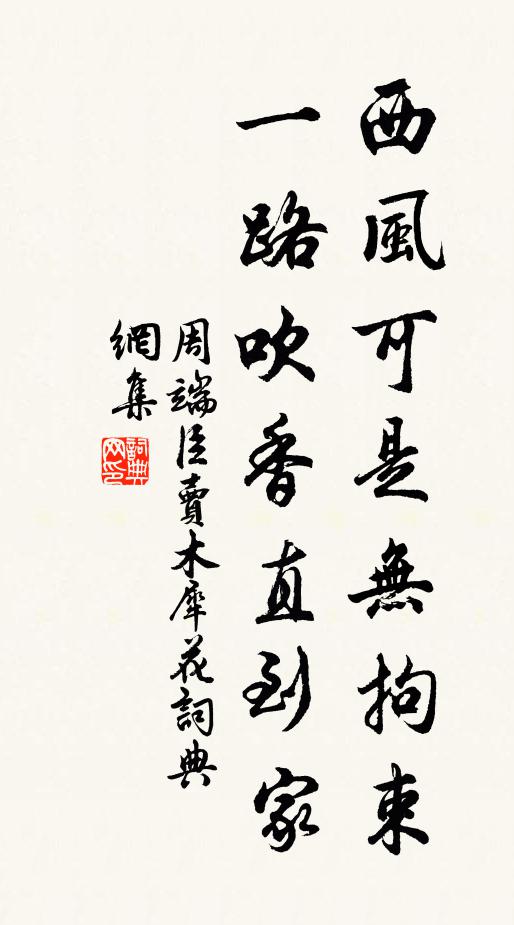 西風可是無拘束
一路吹香直到家
周端臣賣木犀花詞典
網集
詞典
网印